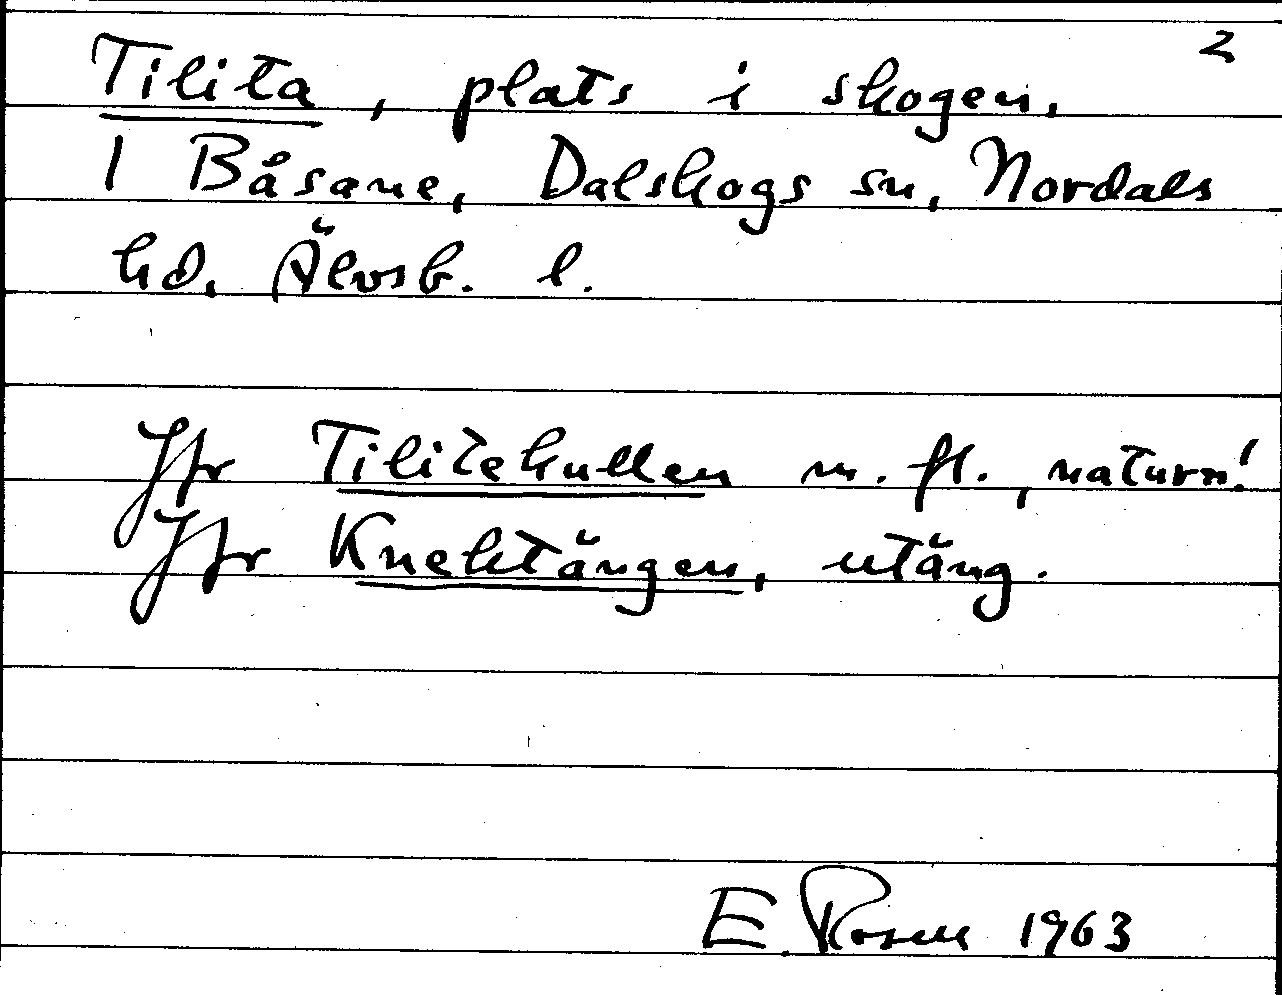 2
Tilita, plats i skogen.
1 Båsane, Dalskogs sn, Nordals
hd, Älvsb. l.
Jfr Tilitekullen m. fl., naturn!
Jfr Knektängen, utäng.
E. Rosen 1963